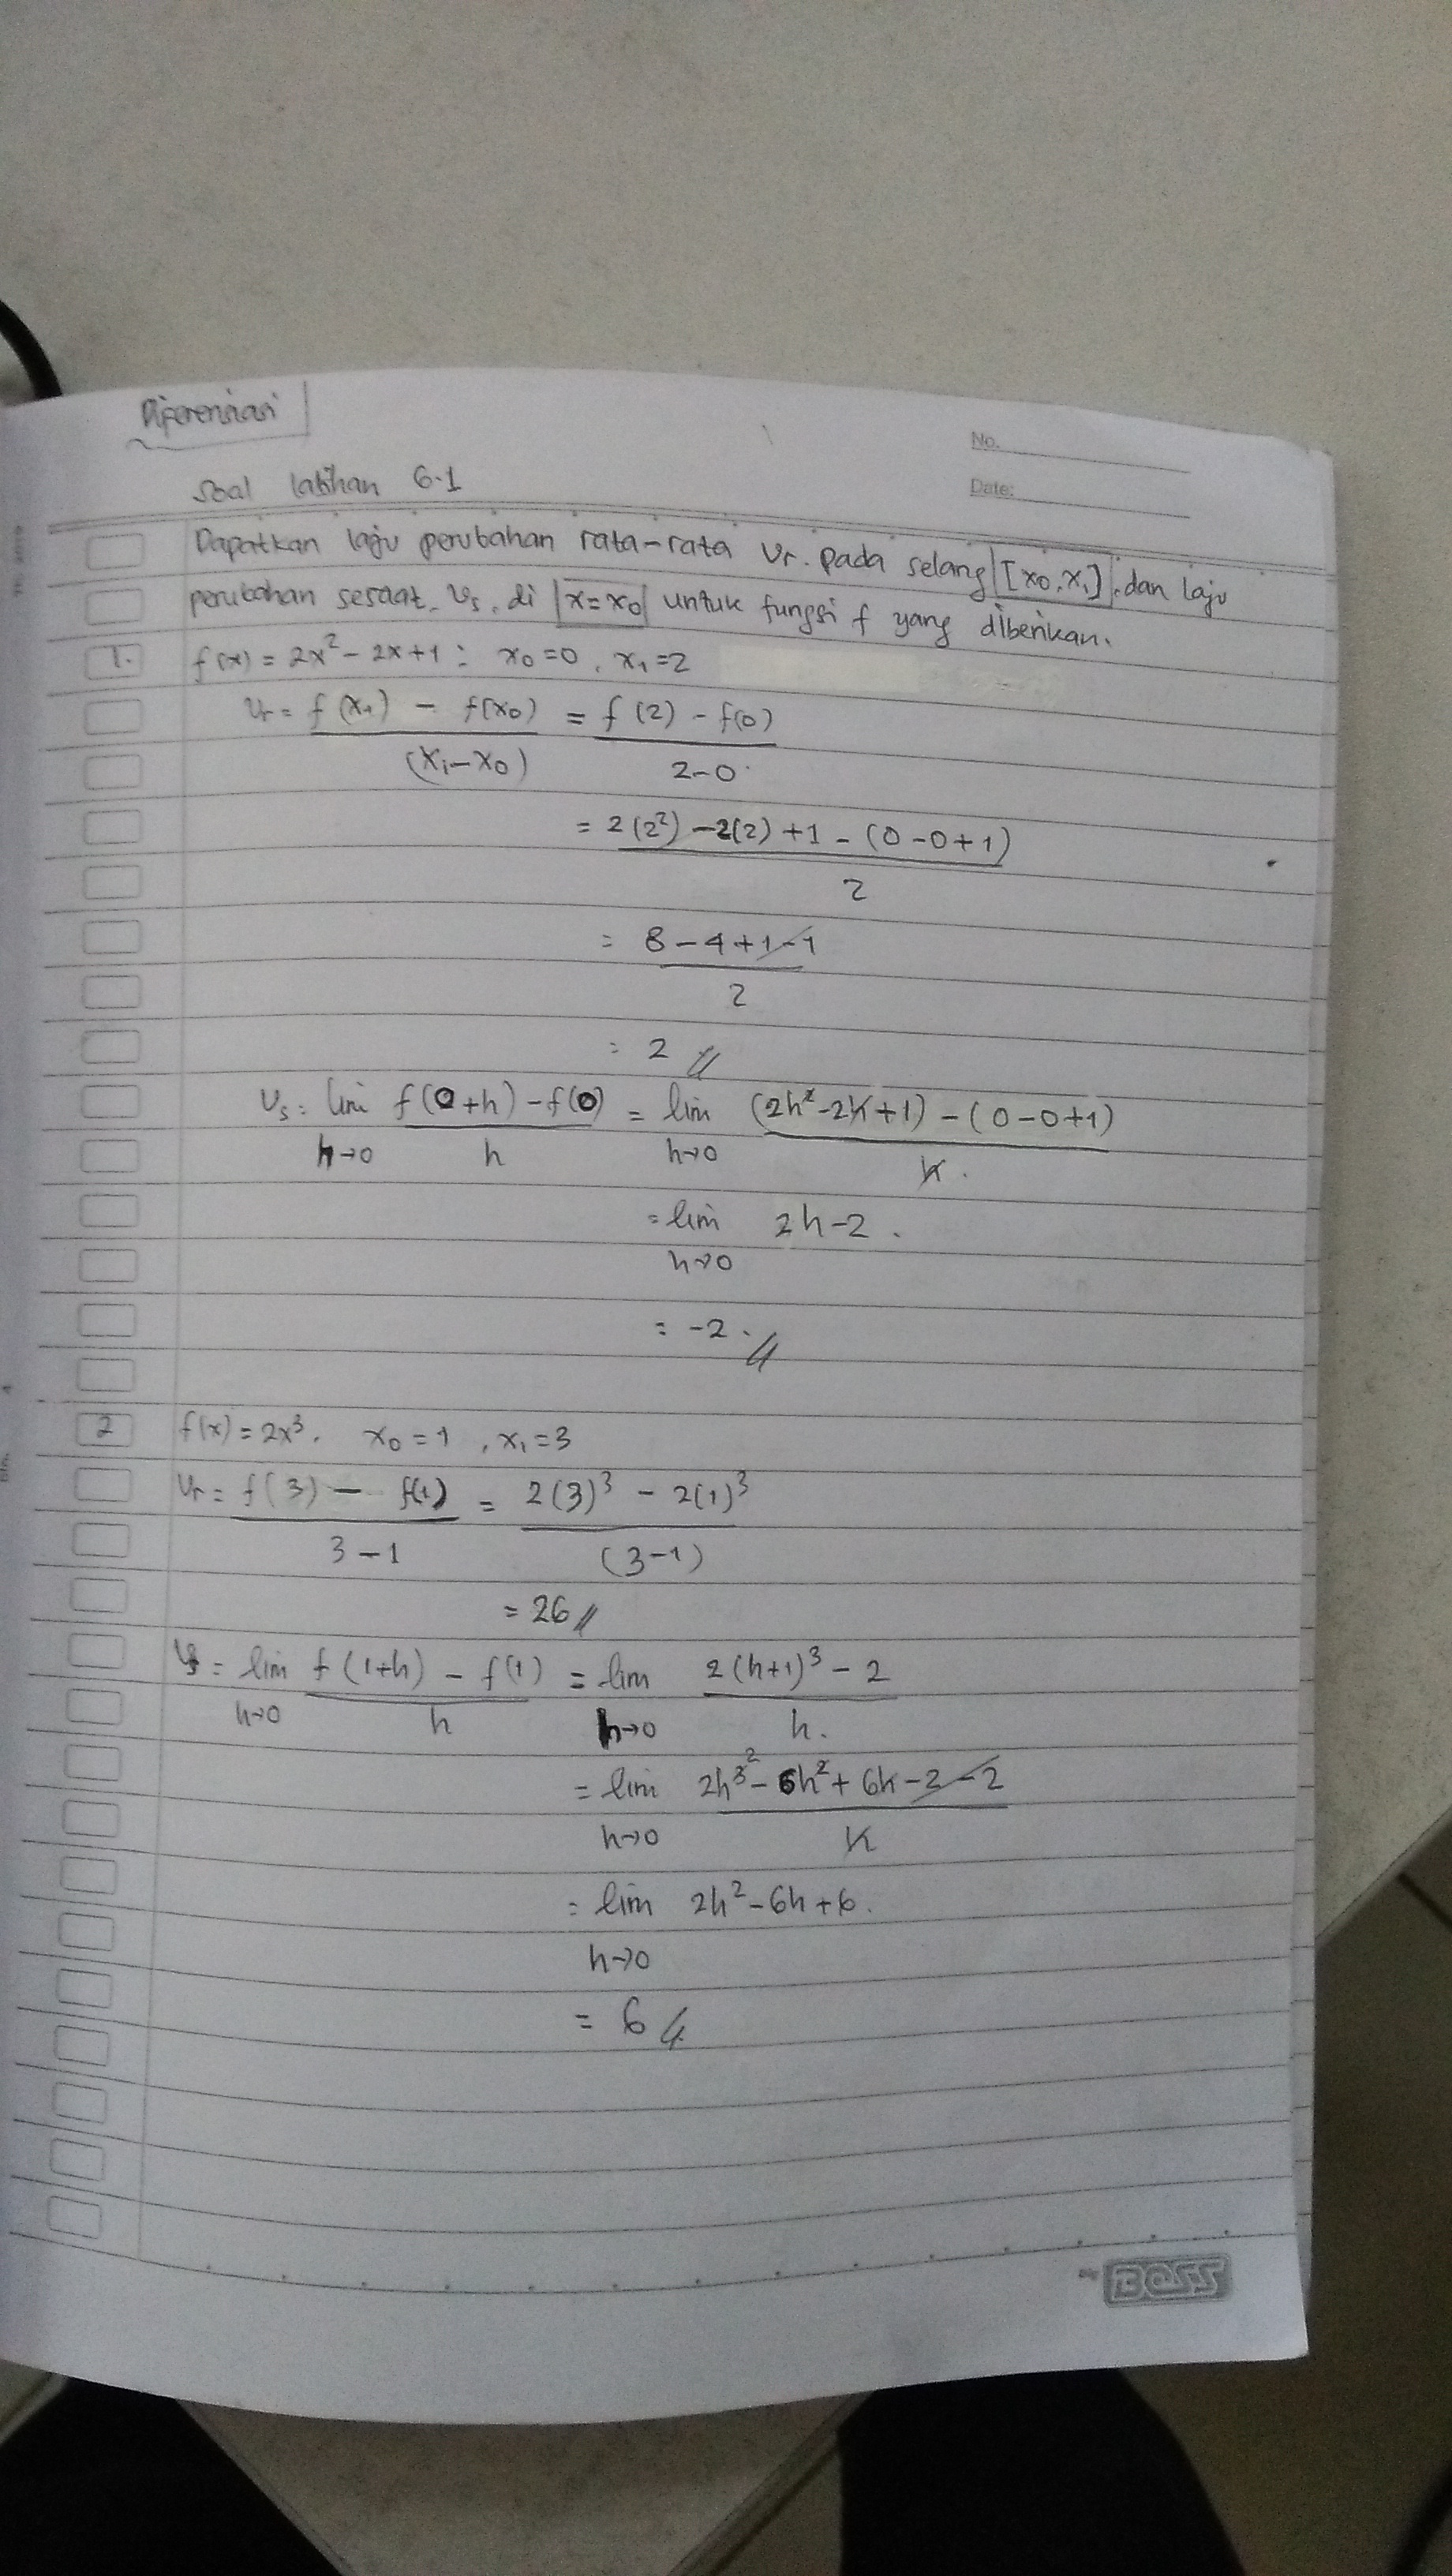 Diferensiasi
No.
Soal latihan 6.1
Date:
Dapatkan laju perubahan rata-rata Vr. pada selang [x0, x1], dan laju
perubahan sesaat, Vs, di x=x0 untuk fungsi f yang diberikan.
1. f(x) = 2x² - 2x + 1 : x0 = 0, x1 = 2
Vr = f(x1) - f(x0) = f(2) - f(0)
(x1 - x0) 2-0
= 2(2²) - 2(2) + 1 - (0-0+1)
2
= 8 - 4 + 1 - 1
2
= 2 //
Vs = lim f(0+h) - f(0) = lim (2h² - 2h + 1) - (0-0+1)
h→0 h h→0 h.
= lim 2h-2.
h→0
= -2. //
2 f(x) = 2x³. x0 = 1, x1 = 3
Vr = f(3) - f(1) = 2(3)³ - 2(1)³
3-1 (3-1)
= 26 //
Vs = lim f(1+h) - f(1) = lim 2(h+1)³ - 2
h→0 h h→0 h.
= lim 2h³ - 6h² + 6h - 2 - 2
h→0 h
= lim 2h² - 6h + 6.
h→0
= 6 //
By BOSS